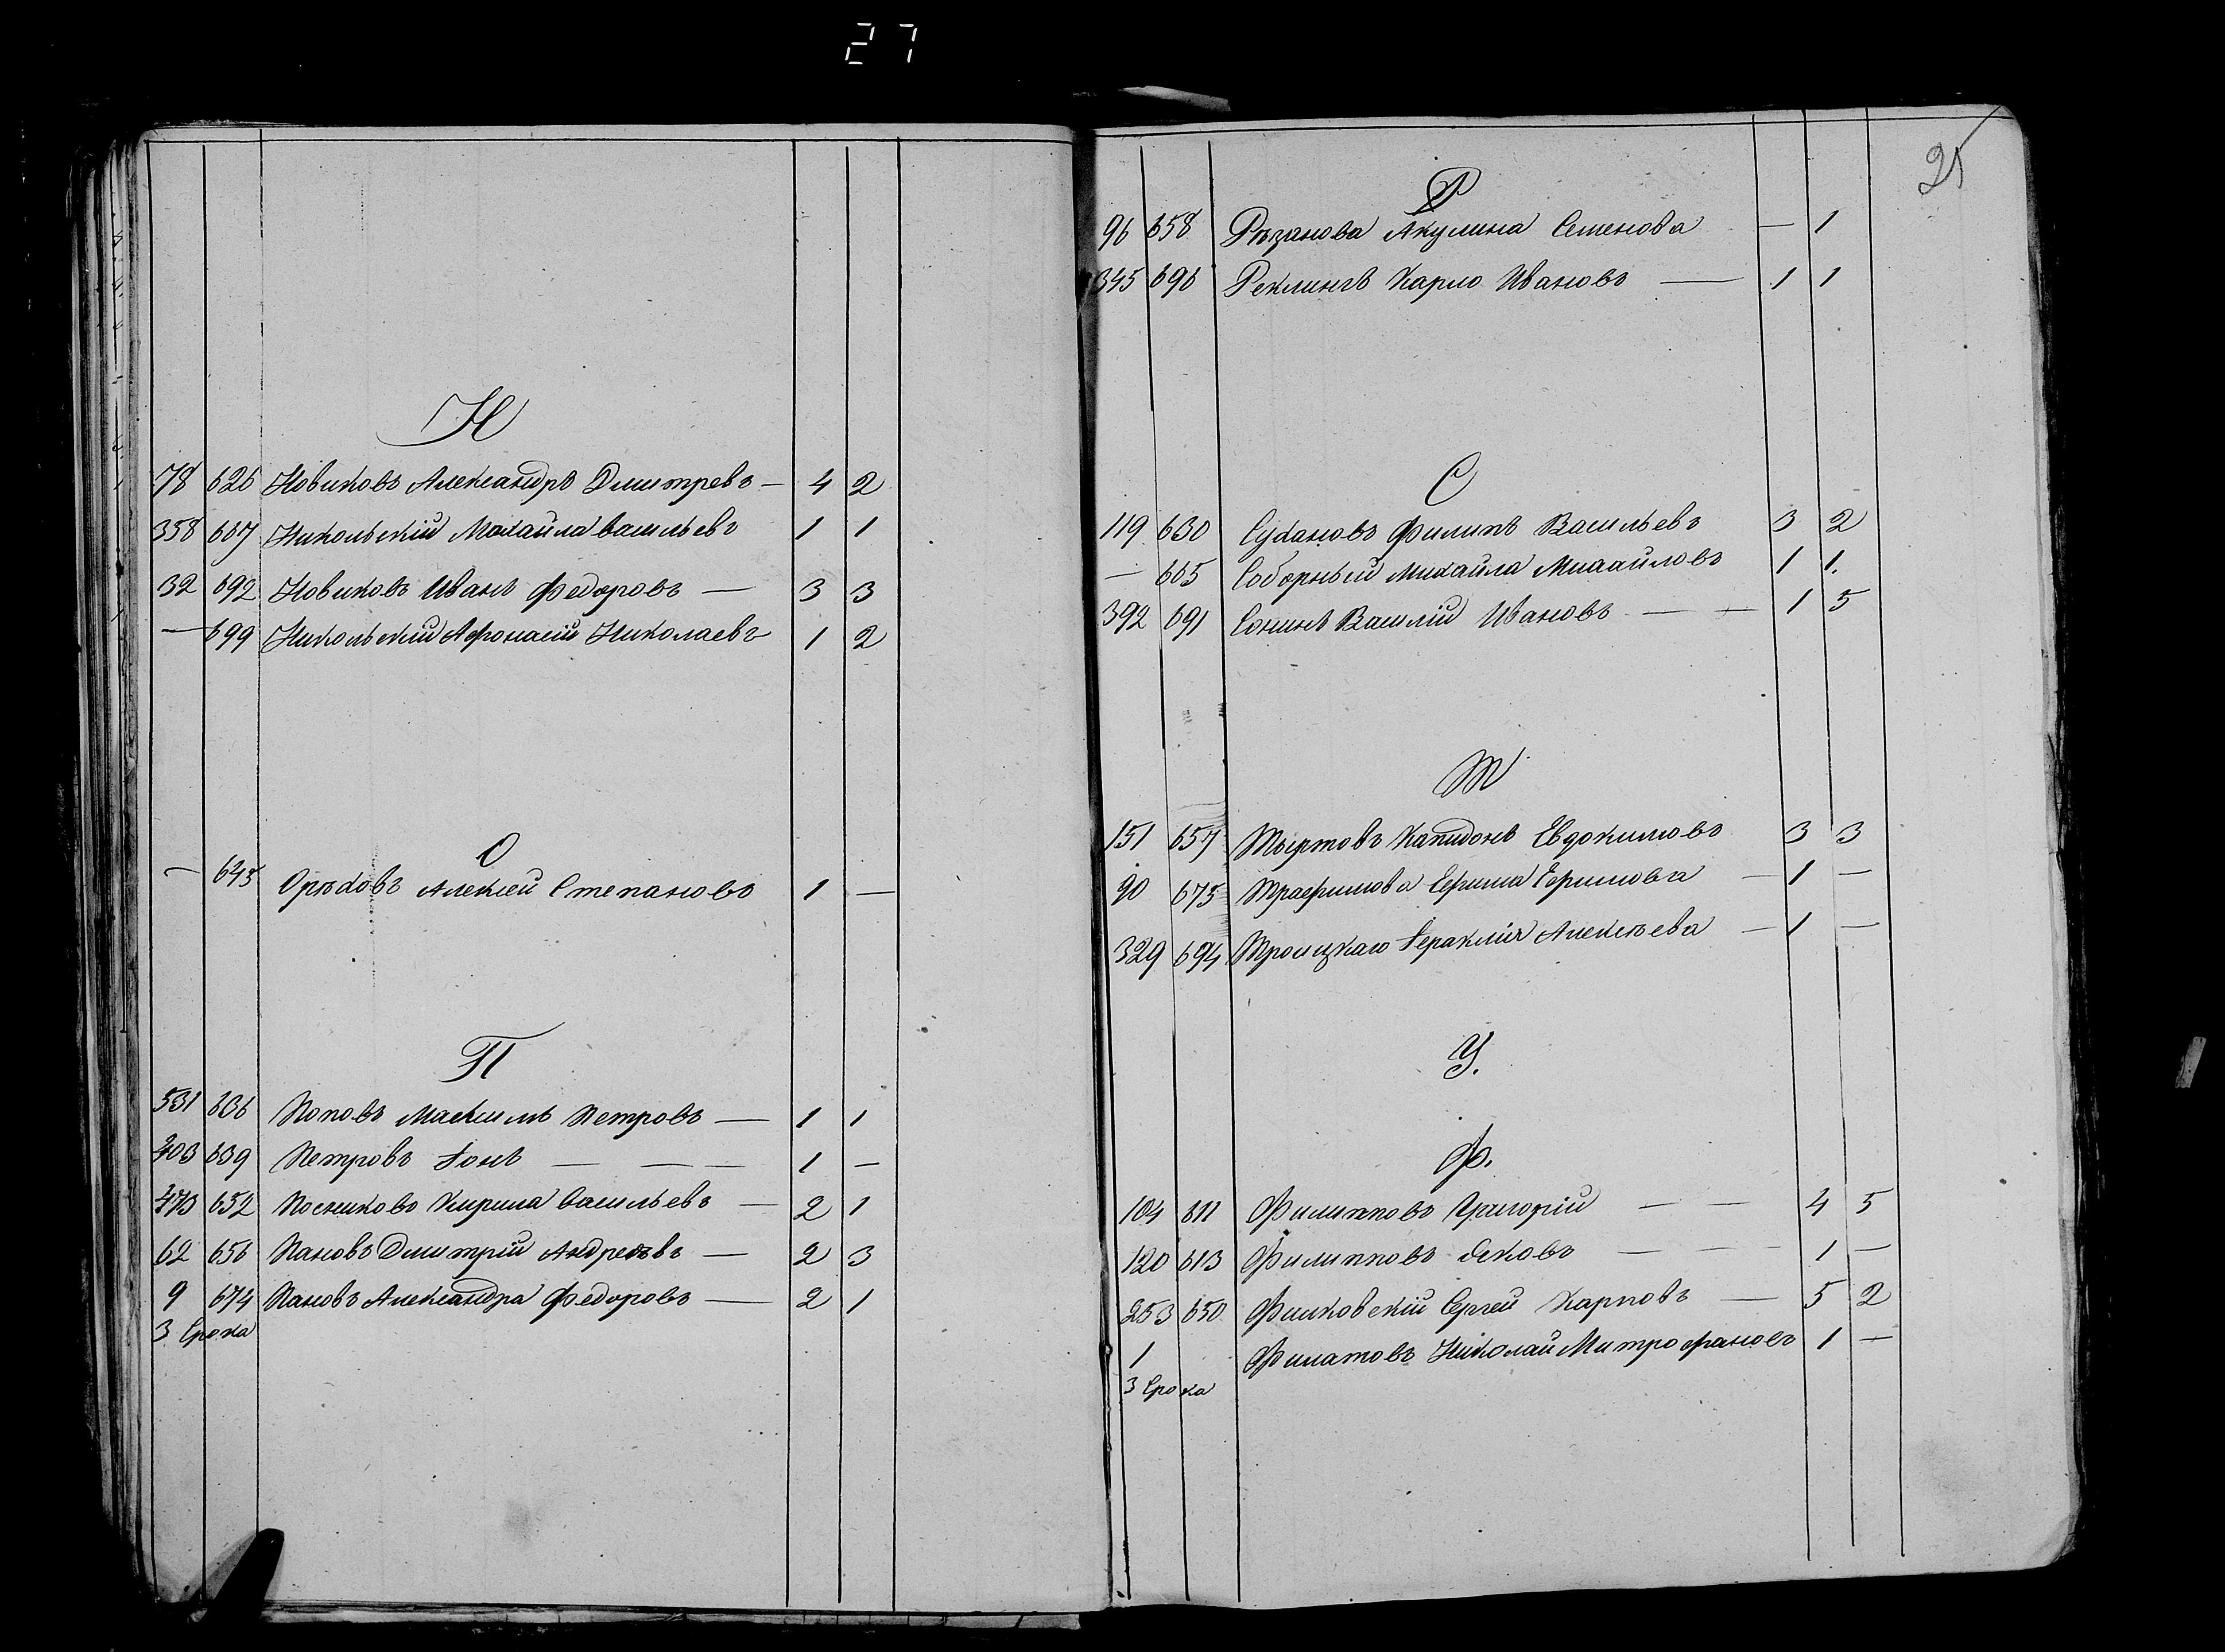 27
Н
78 626 Новиковъ Александръ Дмитревъ — 4 2
358 637 Никольскій Михайла васильевъ 1 1
32 692 Новиковъ Иванъ Федоровъ — 3 3
— 699 Никольскій Афонасій Николаевъ 1 2
О
— 645 Орѣховъ Алексѣй Степановъ 1 —
П
531 636 Поповъ Максимъ Петровъ — 1 1
403 639 Петровъ Іонъ — — — 1 —
473 652 Посниковъ Кирила васильевъ — 2 1
62 656 Пановъ Дмитрій Андреевъ — 2 3
9 674 Пановъ Александра Федоровъ — 2 1
3 Срока
25
Р
96 658 Рѣзанова Акулина Семенова — 1
345 696 Реклингъ Карло Ивановъ — 1 1
С
119 630 Сухановъ Филипъ Васильевъ 3 2
— 665 Соборный Михайла Михайловъ 1 1.
392 691 Сонинъ Василій Ивановъ — — 1 5
Т
151 657 Тыртовъ Капидонъ Евдокимовъ 3 3
90 675 Трафимова Ефима Ефимова — 1 —
329 694 Троицкаго Іераклія Алексѣева — 1 —
У.
Ф.
104 611 Филипповъ Григорій — — 4 5
120 613 Филипповъ Яковъ — — — 1 —
253 650 Фишковскій Сергей Карповъ — 5 2
1 Филатовъ Николай Митрофановъ 1 —
3 Срока